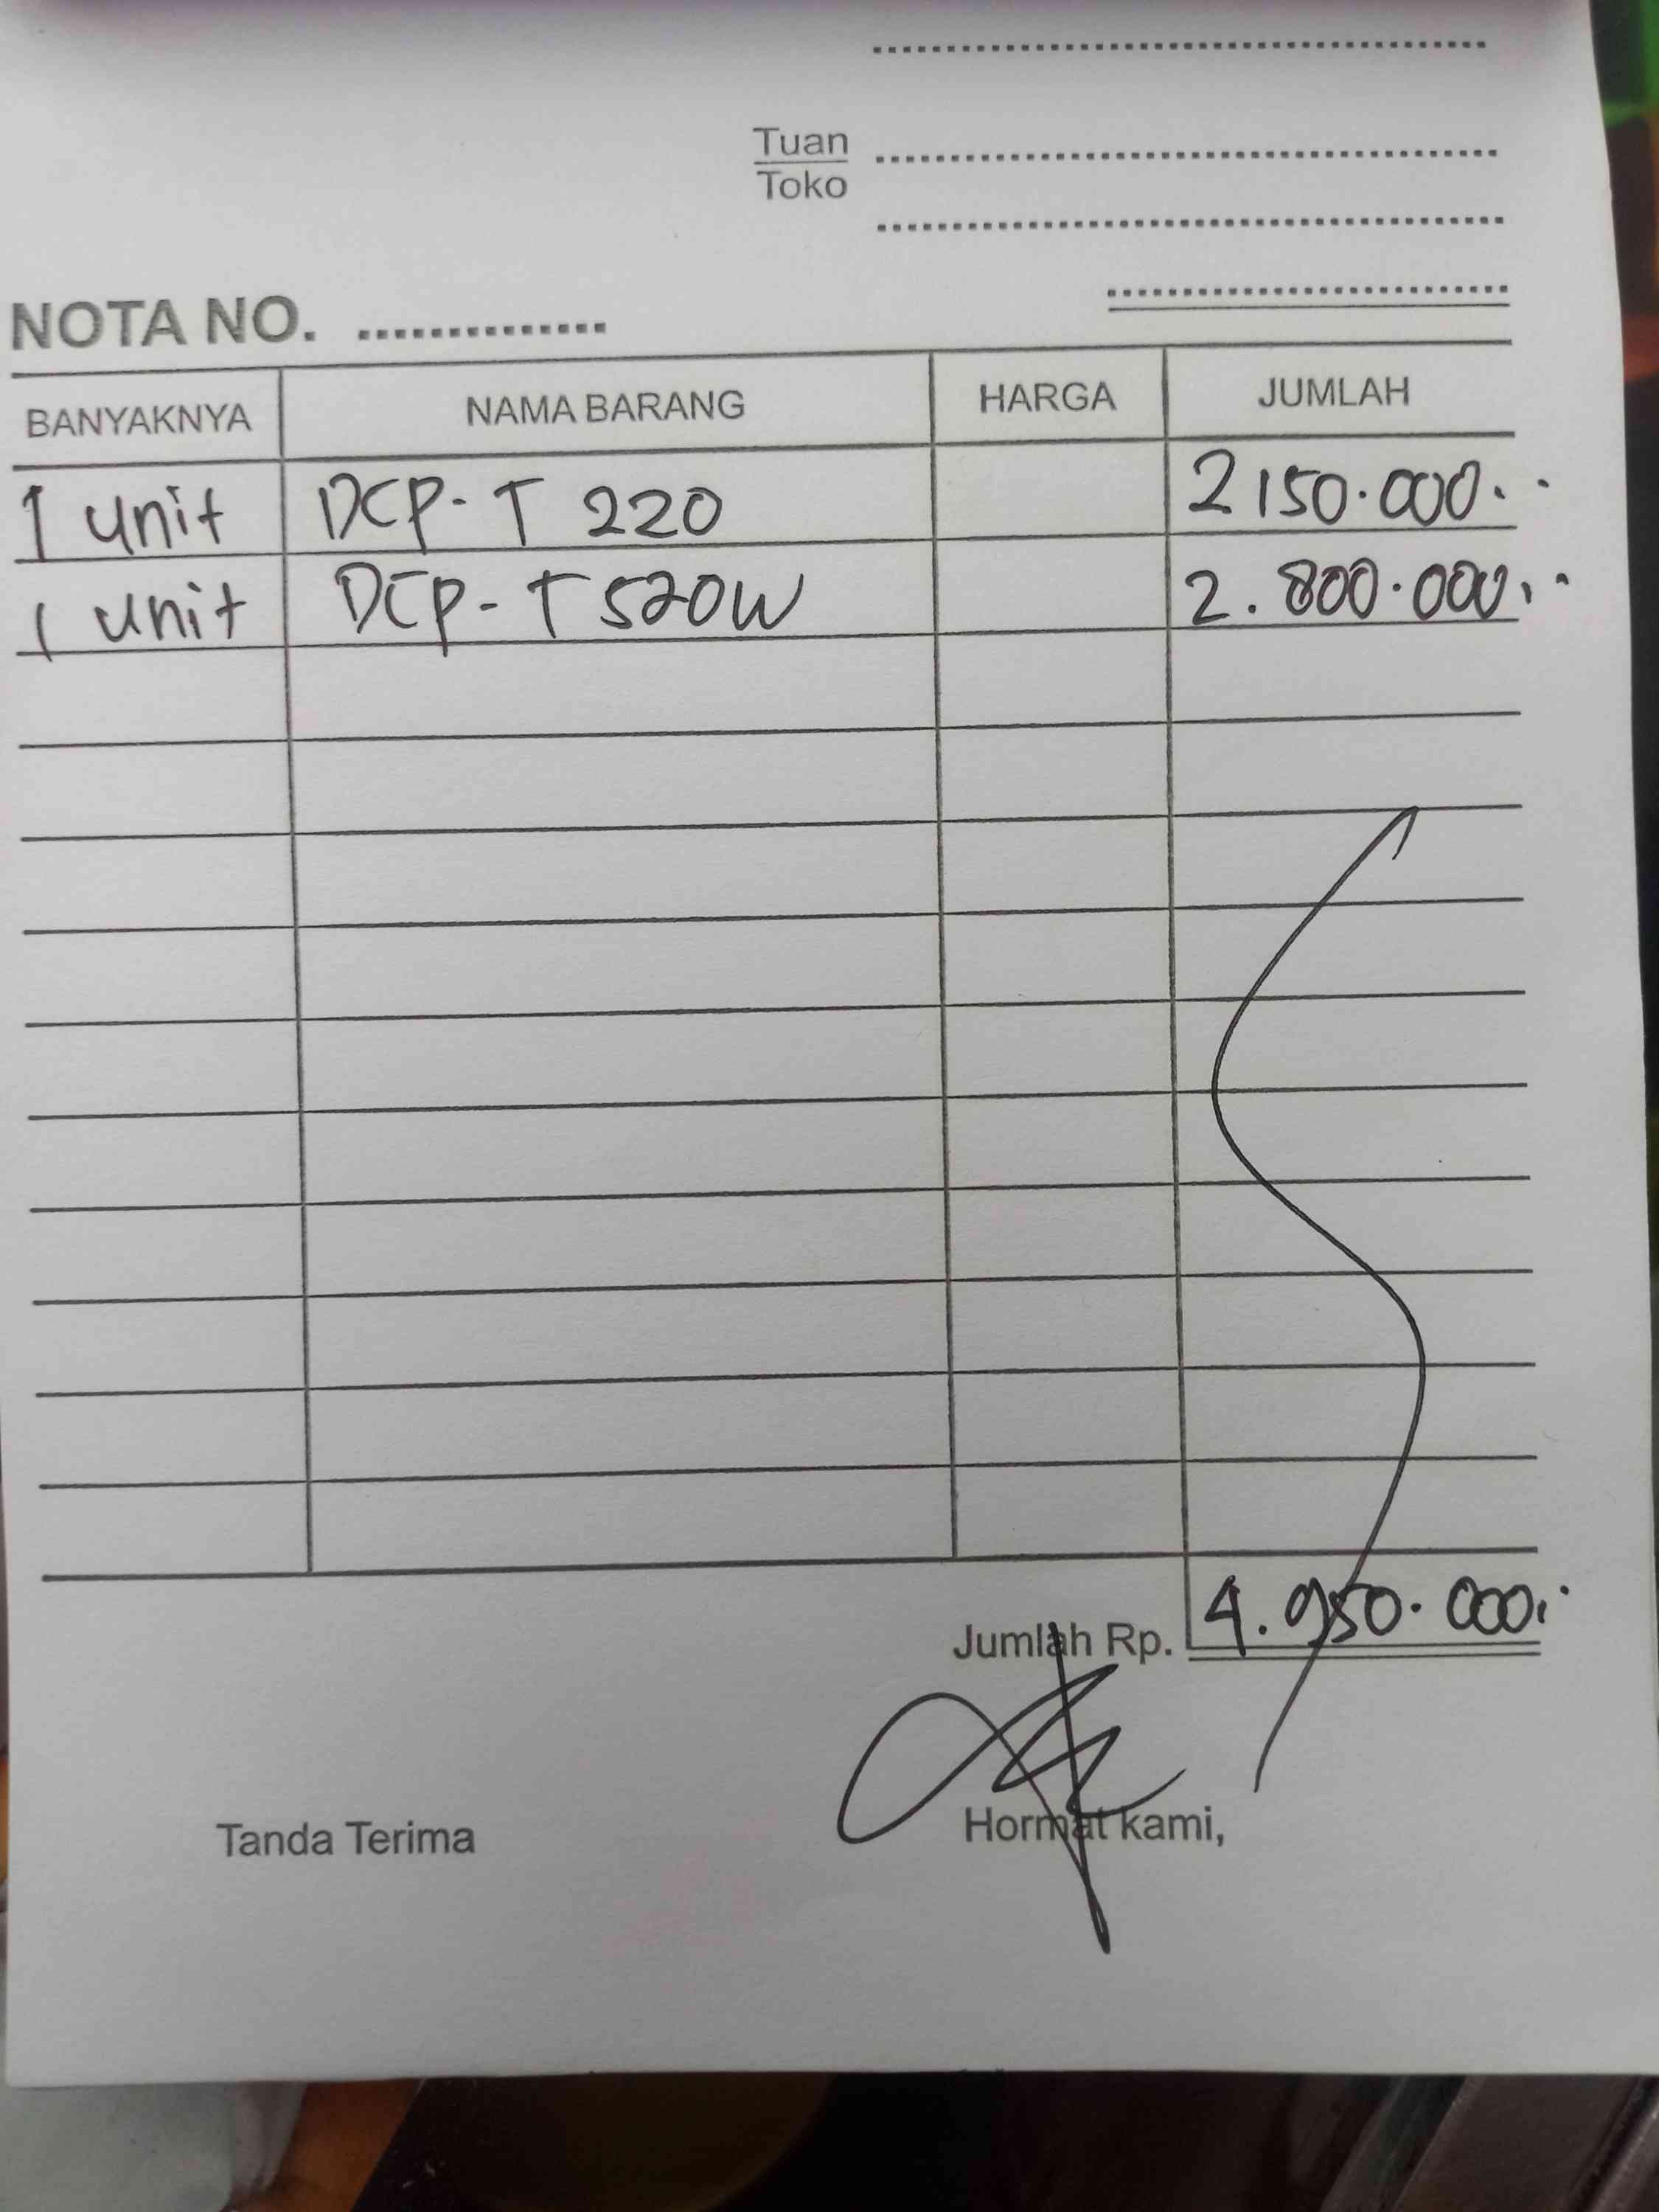 Tuan
Toko
NOTA NO. ..............
BANYAKNYA NAMA BARANG HARGA JUMLAH
1 unit DCP-T 220 2150.000.-
1 unit DCP-T520W 2.800.000,-
Jumlah Rp. 4.950.000,-
Tanda Terima Hormat kami,